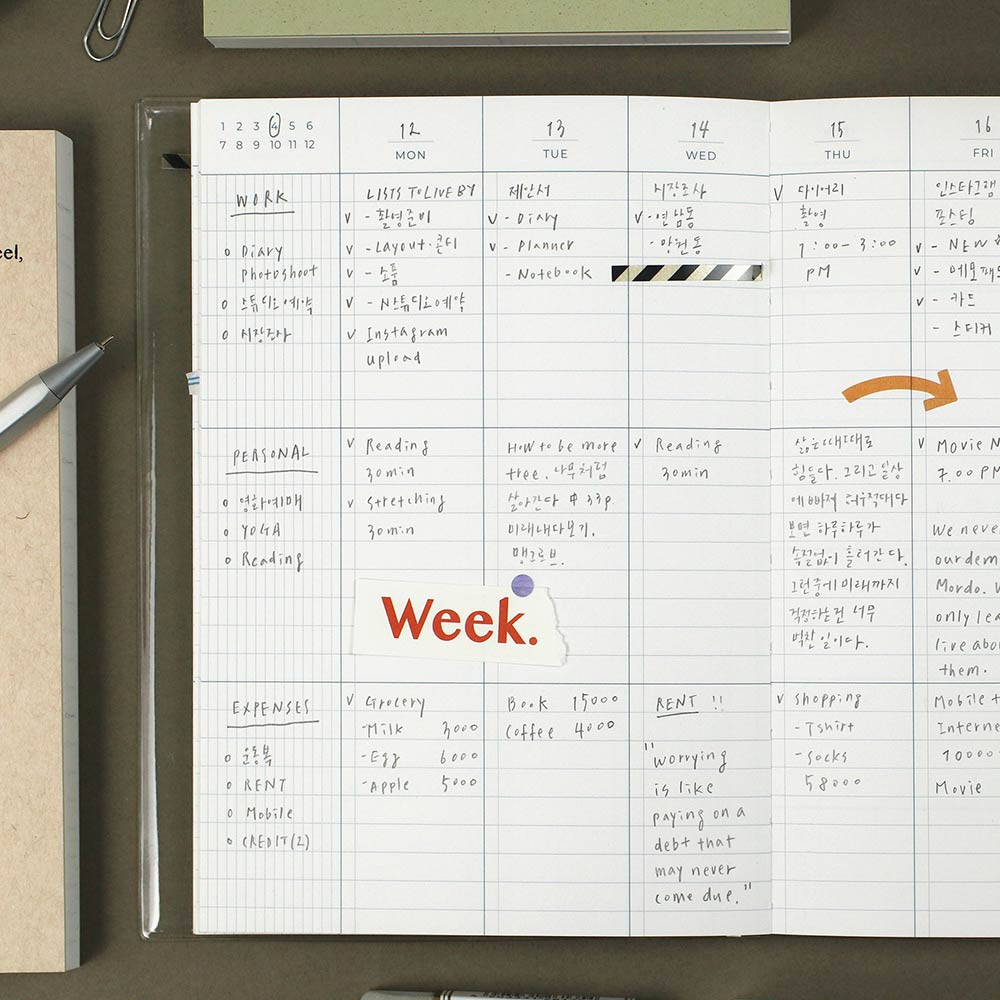 eel,
1 2 3 4 5 6
7 8 9 10 11 12
WORK
o Diary
photoshoot
o 스튜디오예약
o 시장조사
PERSONAL
o 영화예매
o YOGA
o Reading
EXPENSES
o 운동복
o RENT
o Mobile
o CREDIT(2)
12
MON
LISTS TO LIVE BY
v - 촬영준비
v - Layout·콘티
v - 소품
v - N스튜디오예약
v Instagram
upload
v Reading
30min
v stretching
30min
Week.
v Grocery
-Milk 3000
-Egg 6000
-Apple 5000
13
TUE
제안서
v - Diary
v - Planner
- Notebook
How to be more
tree. 나무처럼
살아간다 33p.
미래내다보기.
맹그로브.
Book 15000
Coffee 4000
14
WED
시장조사
v - 연남동
- 망원동
v Reading
30min
RENT !!
"worrying
is like
paying on a
debt that
may never
come due."
15
THU
v 다이어리
촬영
1:00- 3:00
PM
삶은 때때로
힘들다. 그리고 일상
에 빠져 허우적대다
보면 하루하루가
속절없이 흘러간다.
그런중에 미래까지
걱정하는건 너무
벅찬 일이다.
v shopping
- Tshirt
- Socks
58000
16
FRI
인스타그램
포스팅
v - NEW
v - 메모패드
v - 카드
- 스티커
v Movie N
7.00 PM
We neve
our dem
Mordo. W
only lea
live abo
them.
Mobile +
Interne
10000
Movie